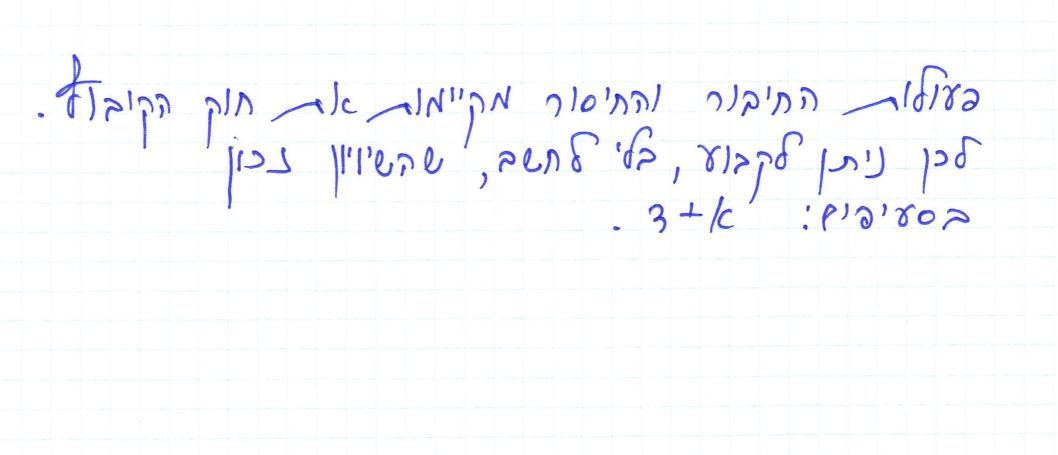 פעולות החיבור והחיסור מקיימות את חוק הקיבוץ.
לכן ניתן לקבוע, בלי לחשב, שהשיוויון נכון
בסעיפים: א+ד.